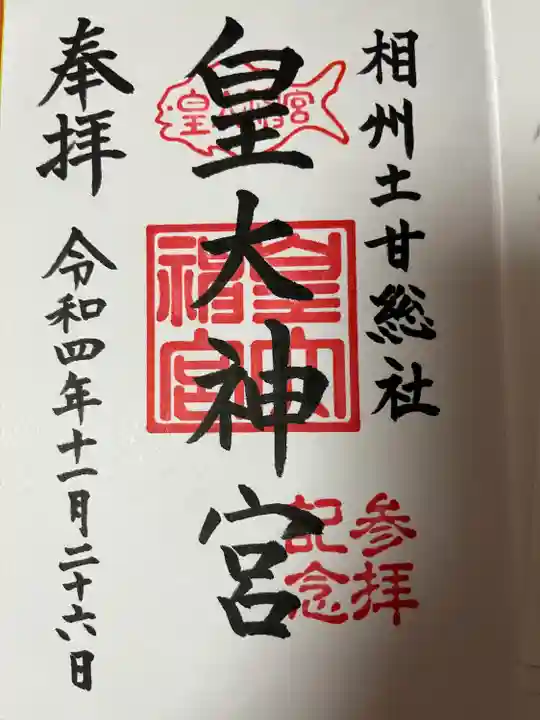 相州土甘総社
皇大神宮
奉拝
令和四年十一月二十六日
皇大神宮
参拝
記念